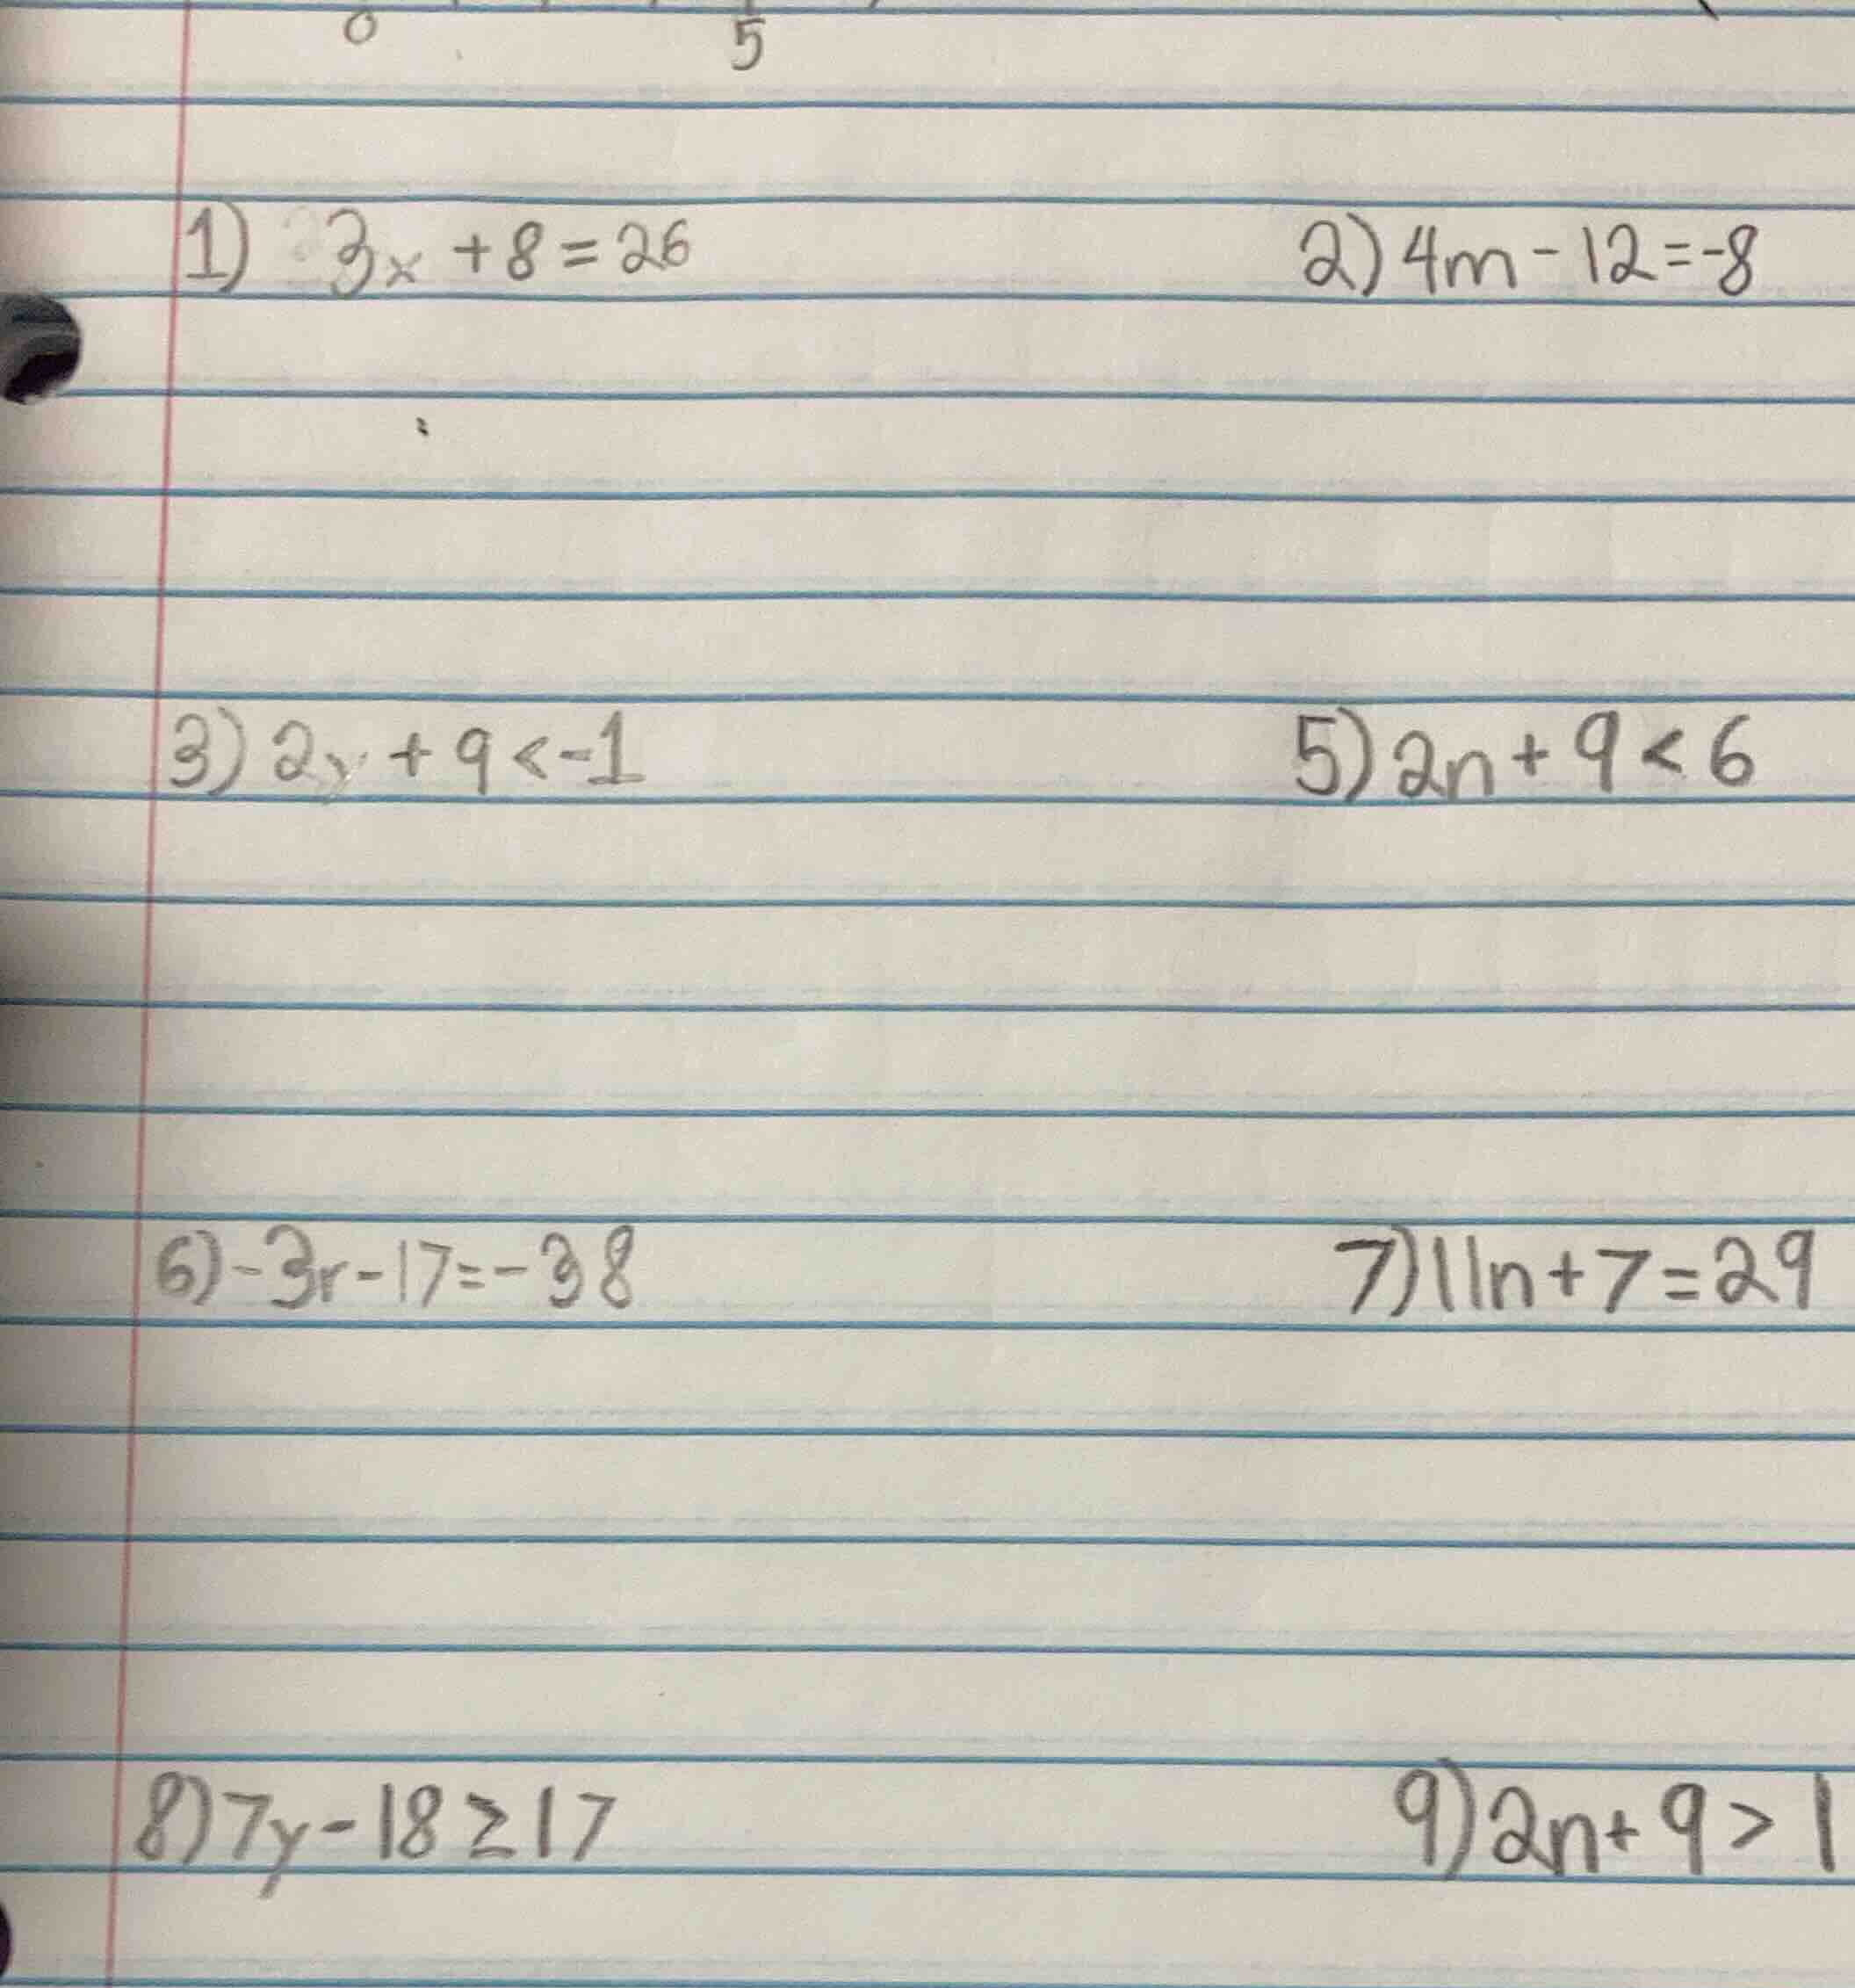 0 5
1) 3x + 8 = 26 2) 4m - 12 = -8
3) 2y + 9 < -1 5) 2n + 9 < 6
6) -3r - 17 = -38 7) 11n + 7 = 29
8) 7y - 18 ≥ 17 9) 2n + 9 > 1